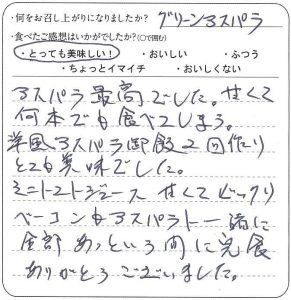 ・何をお召し上がりになりましたか? グリーンアスパラ
・食べたご感想はいかがでしたか?(○で囲む)
・とっても美味しい! ・おいしい ・ふつう
・ちょっとイマイチ ・おいしくない
アスパラ最高でした。甘くて
何本でも食べてしまう。
洋風アスパラ御飯2回作り
とても美味でした。
ミニトマトジュース 甘くてビックリ
ベーコンもアスパラと一緒に
全部 あっという間に完食
ありがとうございました。